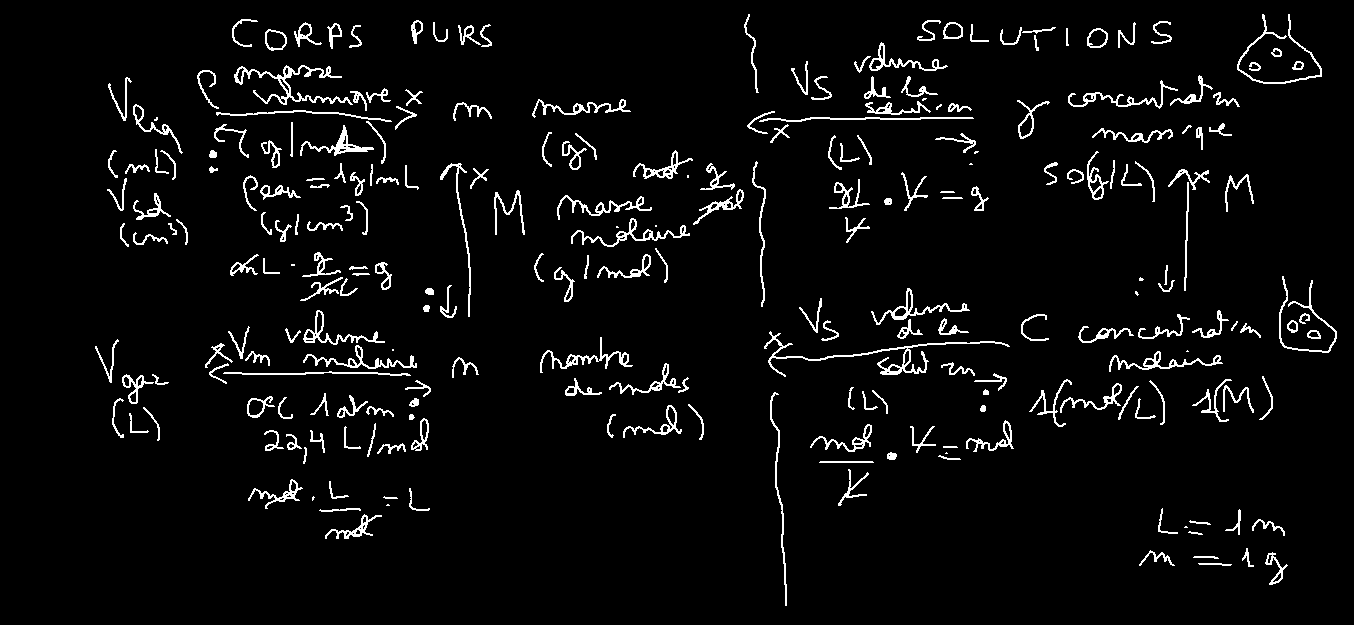 CORPS PURS
SOLUTIONS
ρ masse
volumique x
Vliq
(mL)
Vsol
(cm³)
:
(g/mL)
ρeau = 1g/mL
(g/cm³)
mL · g/mL = g
m masse
(g)
x
:
M masse
molaire
(g/mol)
mol · g/mol
x Vm volume
molaire
Vgaz
(L)
0°C 1 atm :
22,4 L/mol
mol · L/mol = L
n nombre
de moles
(mol)
Vs volume
de la
solution
x
:
(L)
g/L · L = g
γ concentration
massique
50(g/L)
x M
:
x Vs volume
de la
solution
:
(L)
mol/L · L = mol
C concentration
molaire
1(mol/L) 1(M)
L = 1 m
m = 1 g